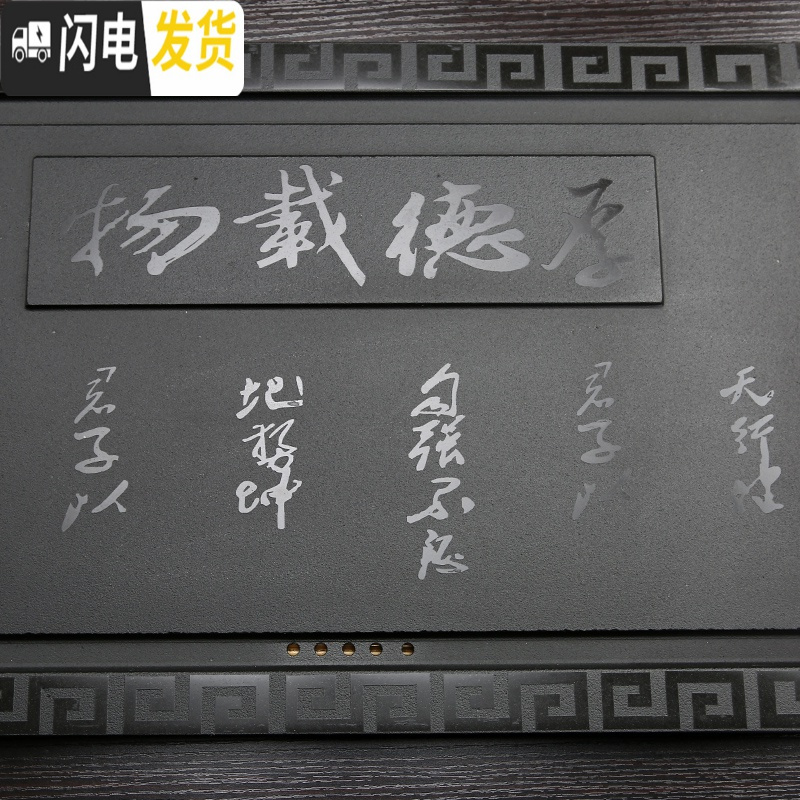 闪电发货
厚德载物
天行健
君子以
自强不息
地势坤
君子以